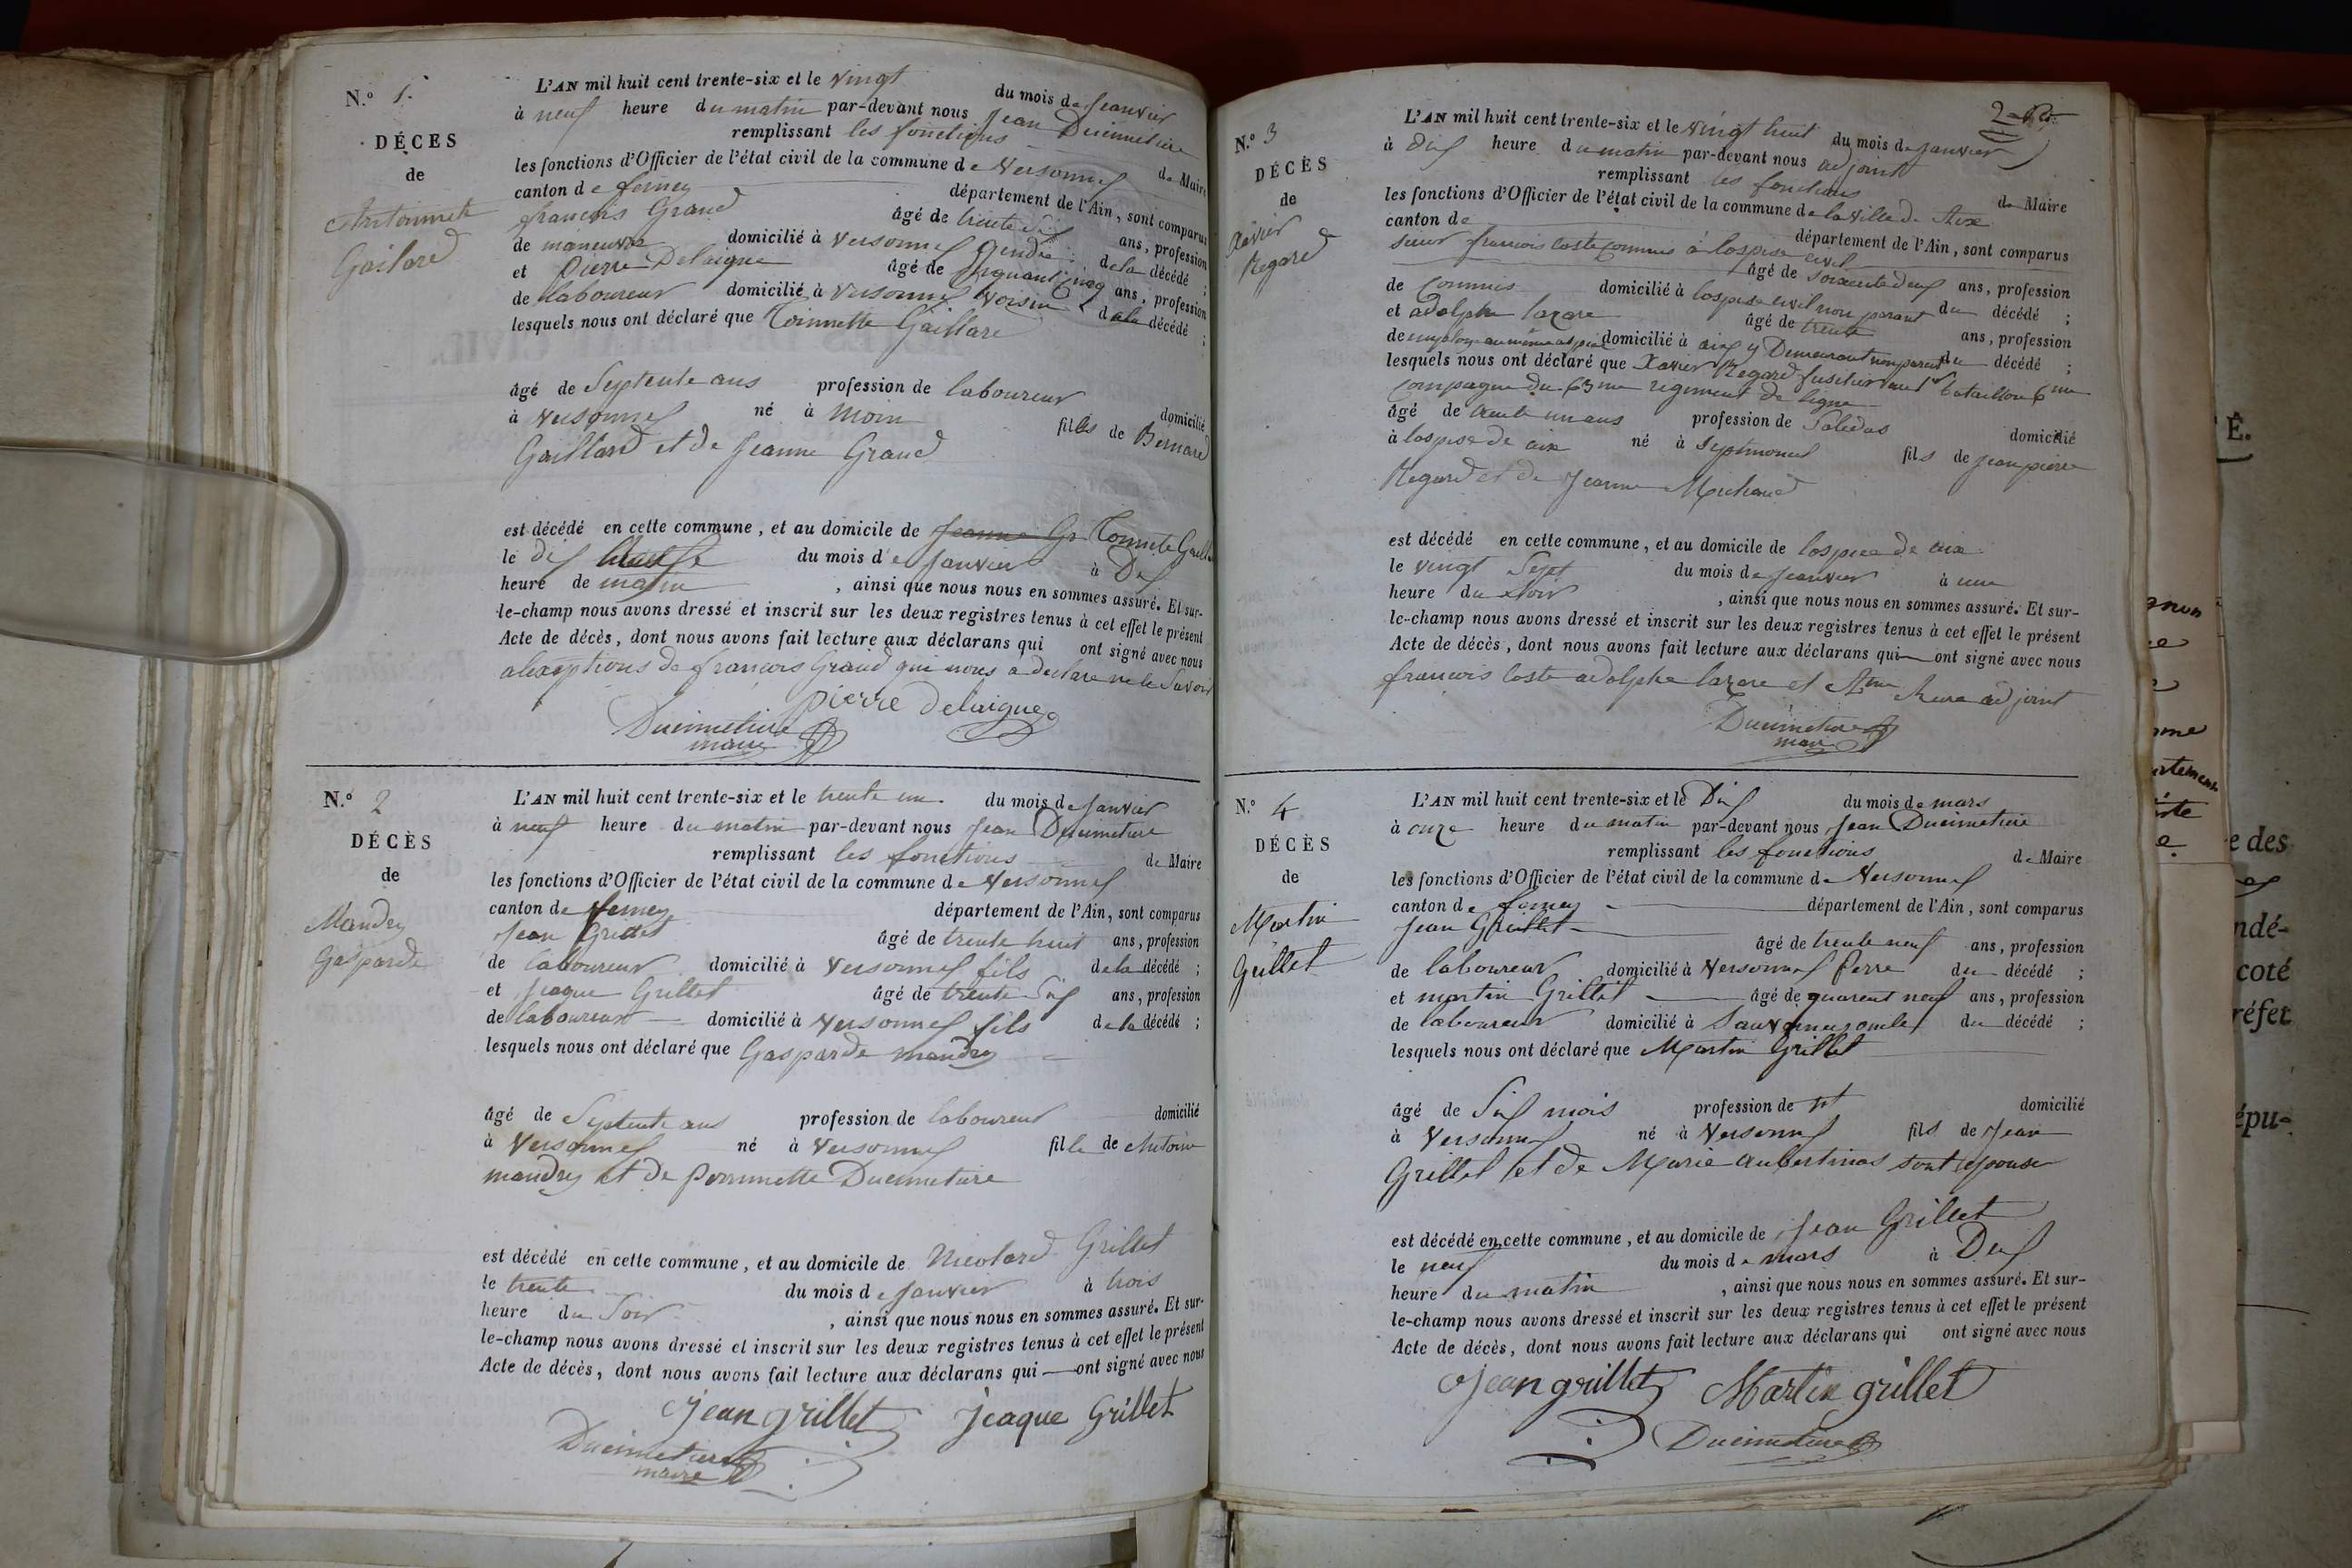 N.º 1.
DÉCES
de
Antoinnete
Gailard
L'AN mil huit cent trente-six et le vingt du mois de Jeanvier
à neuf heure du matin par-devant nous Jean Ducimetiere
remplissant les fonctions de Maire
les fonctions d'Officier de l'état civil de la commune de Versonnex
canton de ferney département de l'Ain, sont comparus
francois Grand âgé de trente six ans, profession
de maneuvre domicilié à Versonnex Gendre de la décédé ;
et Pierre Delaigue âgé de sinquant cinq ans, profession
de laboureur domicilié à Versonnex Voisin de la décédé ;
lesquels nous ont déclaré que Toinnette Gaillard
âgé de Septente ans profession de laboureur domicilié
à Versonnex né à Moin filles de Bernard
Gaillard et de Jeanne Grand
est décédé en cette commune, et au domicile de Jeanne Gr Tonnete Gaillard
le dix neuf du mois de Janvier à Dix
heure de matin , ainsi que nous nous en sommes assuré. Et sur-
le-champ nous avons dressé et inscrit sur les deux registres tenus à cet effet le présent
Acte de décès, dont nous avons fait lecture aux déclarans qui ont signé avec nous
alexeptions de francois Grand qui nous a declare ne le Savoir
pierre delaigue
Ducimetiere
maire
N.º 2
DÉCÈS
de
Mandry
Gasparde
L'AN mil huit cent trente-six et le trente un. du mois de Janvier
à neuf heure du matin par-devant nous Jean Ducimetiere
remplissant les fonctions de Maire
les fonctions d'Officier de l'état civil de la commune de Versonnex
canton de ferney département de l'Ain, sont comparus
Jean Grillet âgé de trente huit ans, profession
de laboureur domicilié à Versonnex fils de la décédé ;
et Jeaque Grillet âgé de trente Six ans, profession
de laboureur domicilié à Versonnex fils de la décédé ;
lesquels nous ont déclaré que Gasparde mandry
âgé de Septente ans profession de laboureur domicilié
à Versonnex né à Versonnex fille de Antoine
mandry et de Perrinette Ducimetiere
est décédé en cette commune, et au domicile de Nicolard Grillet
le trente du mois de Janvier à trois
heure du Soir , ainsi que nous nous en sommes assuré. Et sur-
le-champ nous avons dressé et inscrit sur les deux registres tenus à cet effet le présent
Acte de décès, dont nous avons fait lecture aux déclarans qui ont signé avec nous
Jean grillet Jeaque Grillet
Ducimetiere
maire
N.º 3
DÉCÈS
de
Xavier
Regard
L'AN mil huit cent trente-six et le vingt huit du mois de Janvier
à dix heure du matin par-devant nous adjoint
remplissant les fonctions de Maire
les fonctions d'Officier de l'état civil de la commune de la ville de Aix
canton de département de l'Ain, sont comparus
sieur francois Coste commis à lospise civil
âgé de soixente deux ans, profession
de Commis domicilié à lospise civil non parant du décédé ;
et adolphe lazare âgé de trente ans, profession
de domicilié à aix y Demeurant non parent du décédé ;
lesquels nous ont déclaré que Xavier Regard fusilier au 1er bataillon 6me
compagnie du 63me regiment de ligne
âgé de trente un ans profession de Soldas domicilié
à lospise de aix né à Septmoncel fils de Jean pierre
Regard et de Jeanne Michaud
est décédé en cette commune, et au domicile de lospice de aix
le vingt Sept du mois de Jeanvier à une
heure du Soir , ainsi que nous nous en sommes assuré. Et sur-
le-champ nous avons dressé et inscrit sur les deux registres tenus à cet effet le présent
Acte de décès, dont nous avons fait lecture aux déclarans qui ont signé avec nous
francois Coste adolphe lazare et adjoint
Ducimetiere
maire
N.º 4
DÉCÈS
de
Martin
Grillet
L'AN mil huit cent trente-six et le Dix du mois de mars
à onze heure du matin par-devant nous Jean Ducimetiere
remplissant les fonctions de Maire
les fonctions d'Officier de l'état civil de la commune de Versonnex
canton de ferney département de l'Ain, sont comparus
Jean Grillet âgé de trente neuf ans, profession
de laboureur domicilié à Versonnex Perre du décédé ;
et martin Grillet âgé de quarent neuf ans, profession
de laboureur domicilié à du décédé ;
lesquels nous ont déclaré que Martin Grillet
âgé de Six mois profession de domicilié
à Versonnex né à Versonnex fils de Jean
Grillet et de Marie aubertinas sont epouse
est décédé en cette commune, et au domicile de Jean Grillet
le neuf du mois de mars à Deux
heure du matin , ainsi que nous nous en sommes assuré. Et sur-
le-champ nous avons dressé et inscrit sur les deux registres tenus à cet effet le présent
Acte de décès, dont nous avons fait lecture aux déclarans qui ont signé avec nous
Jean grillet Martin grillet
Ducimetiere